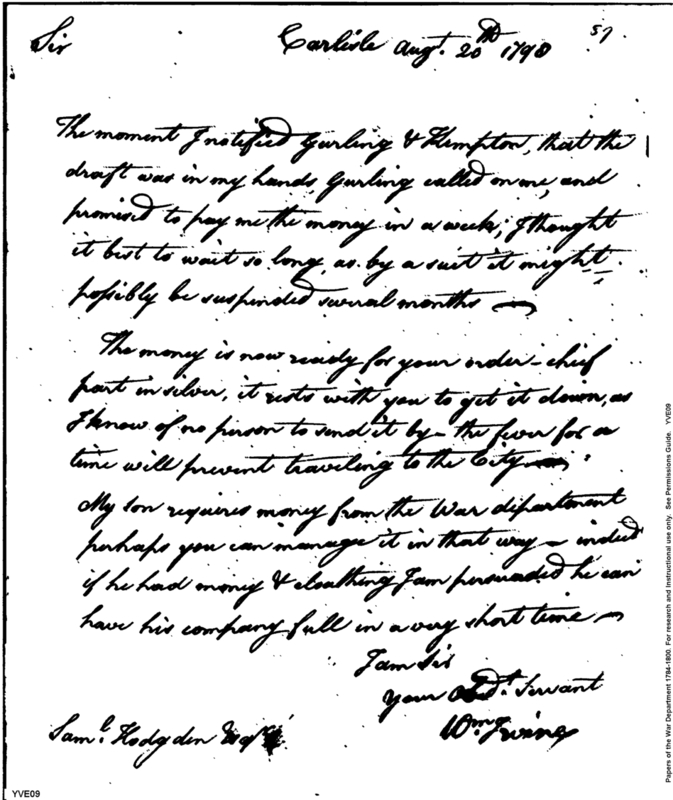 57
Sir Carlisle Augt. 20th 1798
The moment I notified Gurling & Klempton, that the
draft was in my hands, Gurling called on me, and
promised to pay me the money in a week; I thought
it best to wait so long, as by a suit it might
possibly be suspended several months —
The money is now ready for your order – chief
part in silver, it rests with you to get it down, as
I know of no person to send it by – the fever for a
time will prevent traveling to the City —
My son requires money from the War department
perhaps you can manage it in that way – indeed
if he had money & cloathing I am persuaded he can
have his company full in a very short time —
I am Sir
your Obedt. Servant
Wm. Irvine
Saml. Hodgden Esqr.
YVE09
Papers of the War Department 1784-1800. For research and Instructional use only. See Permissions Guide. YVE09